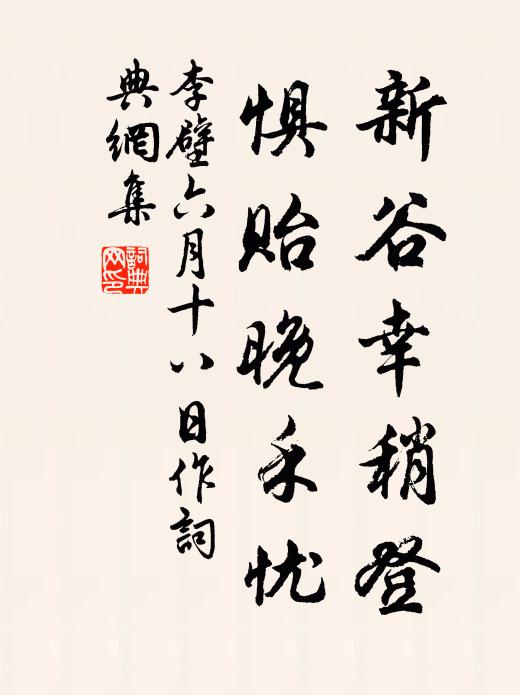 新谷幸稍登
惧贻晚禾忧
李壁六月十八日作詞
典網集
詞典网印